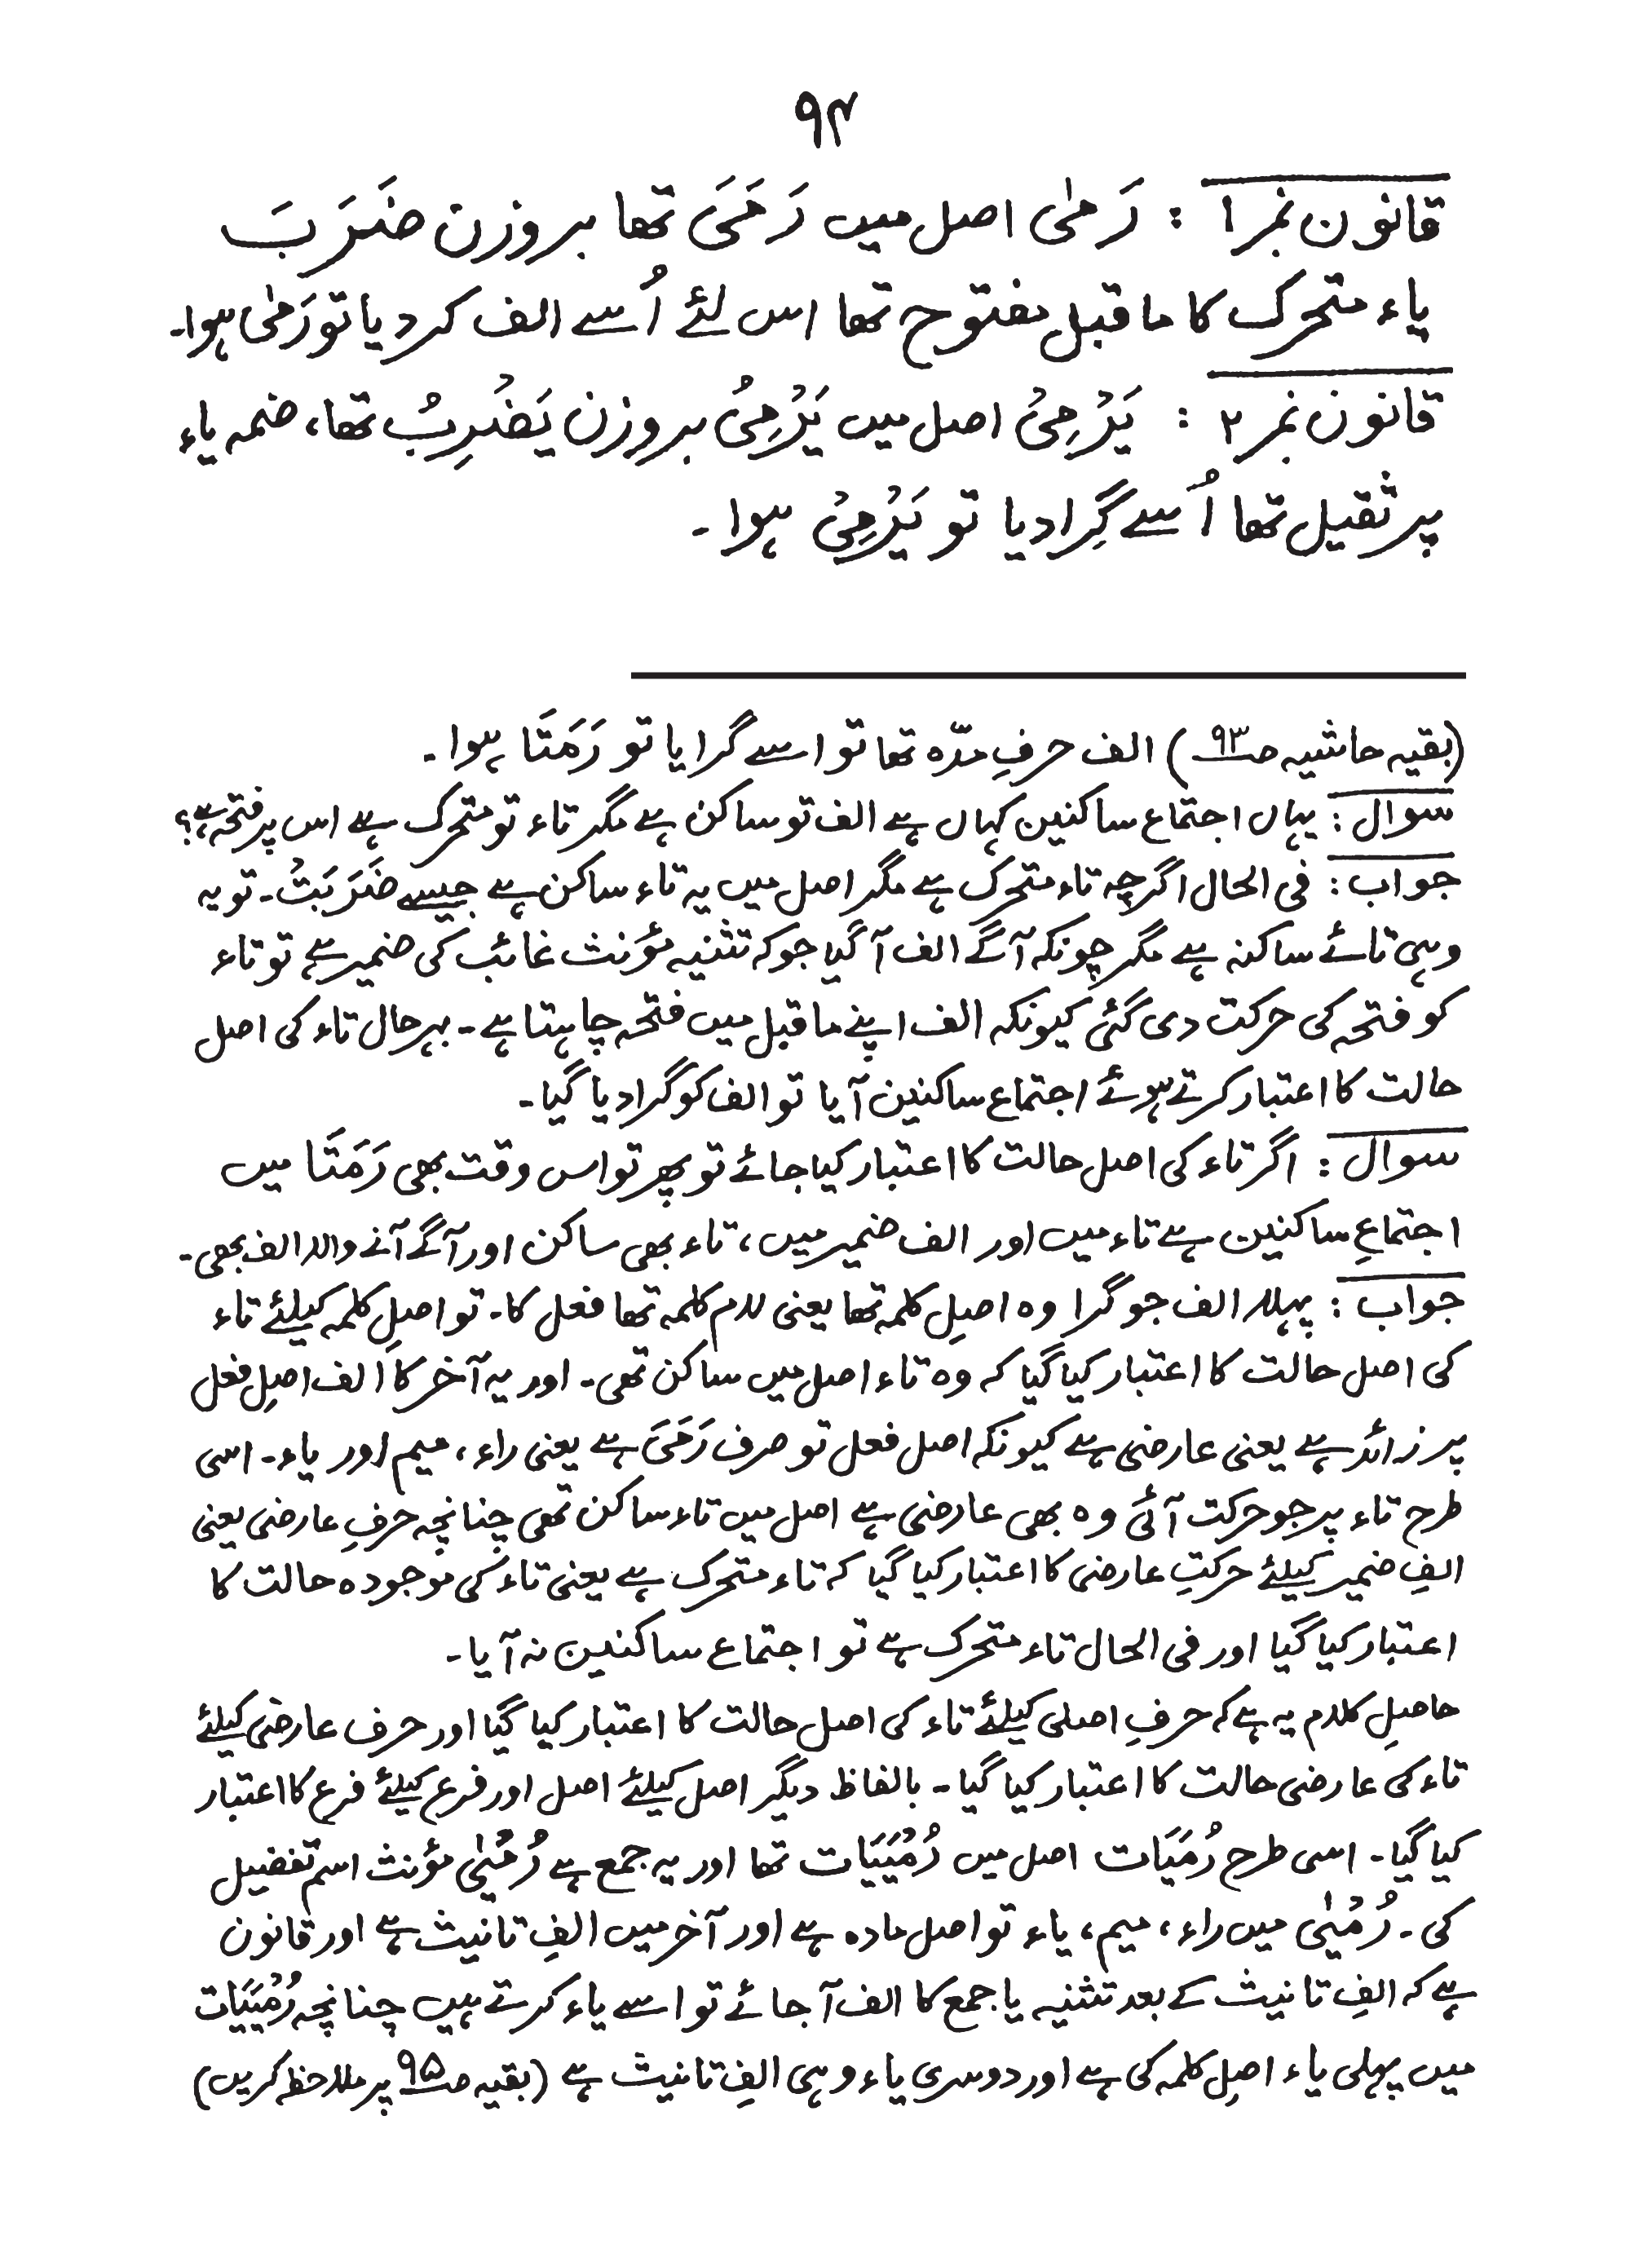 ۹۴
قانون نمبر ۱ : رَمٰی اصل میں رَمَیَ تھا بروزن ضَرَبَ
یاء متحرک کا ماقبل مفتوح تھا اس لئے اُسے الف کردیا تو رَمٰی ہوا۔
قانون نمبر ۲ : یَرْمِیْ اصل میں یَرْمِیُ بروزن یَضْرِبُ تھا، ضمہ یاء
پر ثقیل تھا اُسے گِرادیا تو یَرْمِیْ ہوا ۔
(بقیہ حاشیہ صـ۹۳) الف حرفِ مدّہ تھا تو اسے گرایا تو رَمَتَا ہوا ۔
سوال : یہاں اجتماع ساکنین کہاں ہے الف تو ساکن ہے مگر تاء تو متحرک ہے اس پر فتحہ ہے؟
جواب : فی الحال اگرچہ تاء متحرک ہے مگر اصل میں یہ تاء ساکن ہے جیسے ضَرَبَتْ۔ تو یہ
وہی تائے ساکنہ ہے مگر چونکہ آگے الف آگیا جو کہ تثنیہ مؤنث غائب کی ضمیر ہے تو تاء
کو فتحہ کی حرکت دی گئی کیونکہ الف اپنے ماقبل میں فتحہ چاہتا ہے ۔ بہرحال تاء کی اصل
حالت کا اعتبار کرتے ہوئے اجتماع ساکنین آیا تو الف کو گرادیا گیا ۔
سوال : اگر تاء کی اصل حالت کا اعتبار کیا جائے تو پھر تو اس وقت بھی رَمَتَا میں
اجتماعِ ساکنین ہے تاء میں اور الف ضمیر میں، تاء بھی ساکن اور آگے آنے والا الف بھی ۔
جواب : پہلا الف جو گرا وہ اصلِ کلمہ تھا یعنی لام کلمہ تھا فعل کا۔ تو اصلِ کلمہ کیلئے تاء
کی اصل حالت کا اعتبار کیا گیا کہ وہ تاء اصل میں ساکن تھی۔ اور یہ آخر کا الف اصلِ فعل
پر زائد ہے یعنی عارضی ہے کیونکہ اصل فعل تو صرف رَمَیَ ہے یعنی راء ، میم اور یاء۔ اسی
طرح تاء پر جو حرکت آئی وہ بھی عارضی ہے اصل میں تاء ساکن تھی چنانچہ حرفِ عارضی یعنی
الفِ ضمیر کیلئے حرکتِ عارضی کا اعتبار کیا گیا کہ تاء متحرک ہے یعنی تاء کی موجودہ حالت کا
اعتبار کیا گیا اور فی الحال تاء متحرک ہے تو اجتماع ساکنین نہ آیا ۔
حاصلِ کلام یہ ہے کہ حرفِ اصلی کیلئے تاء کی اصل حالت کا اعتبار کیا گیا اور حرف عارضی کیلئے
تاء کی عارضی حالت کا اعتبار کیا گیا ۔ بالفاظ دیگر اصل کیلئے اصل اور فرع کیلئے فرع کا اعتبار
کیا گیا ۔ اسی طرح رُمَیَات اصل میں رُمْیَیَات تھا اور یہ جمع ہے رُمْیٰی مؤنث اسم تفضیل
کی ۔ رُمْیٰی میں راء ، میم، یاء تو اصل مادہ ہے اور آخر میں الفِ تانیث ہے اور قانون
ہے کہ الفِ تانیث کے بعد تثنیہ یا جمع کا الف آجائے تو اسے یاء کرتے ہیں چنانچہ رُمْیَیَات
میں پہلی یاء اصلِ کلمہ کی ہے اور دوسری یاء وہی الفِ تانیث ہے (بقیہ صـ۹۵ پر ملاحظہ کریں)